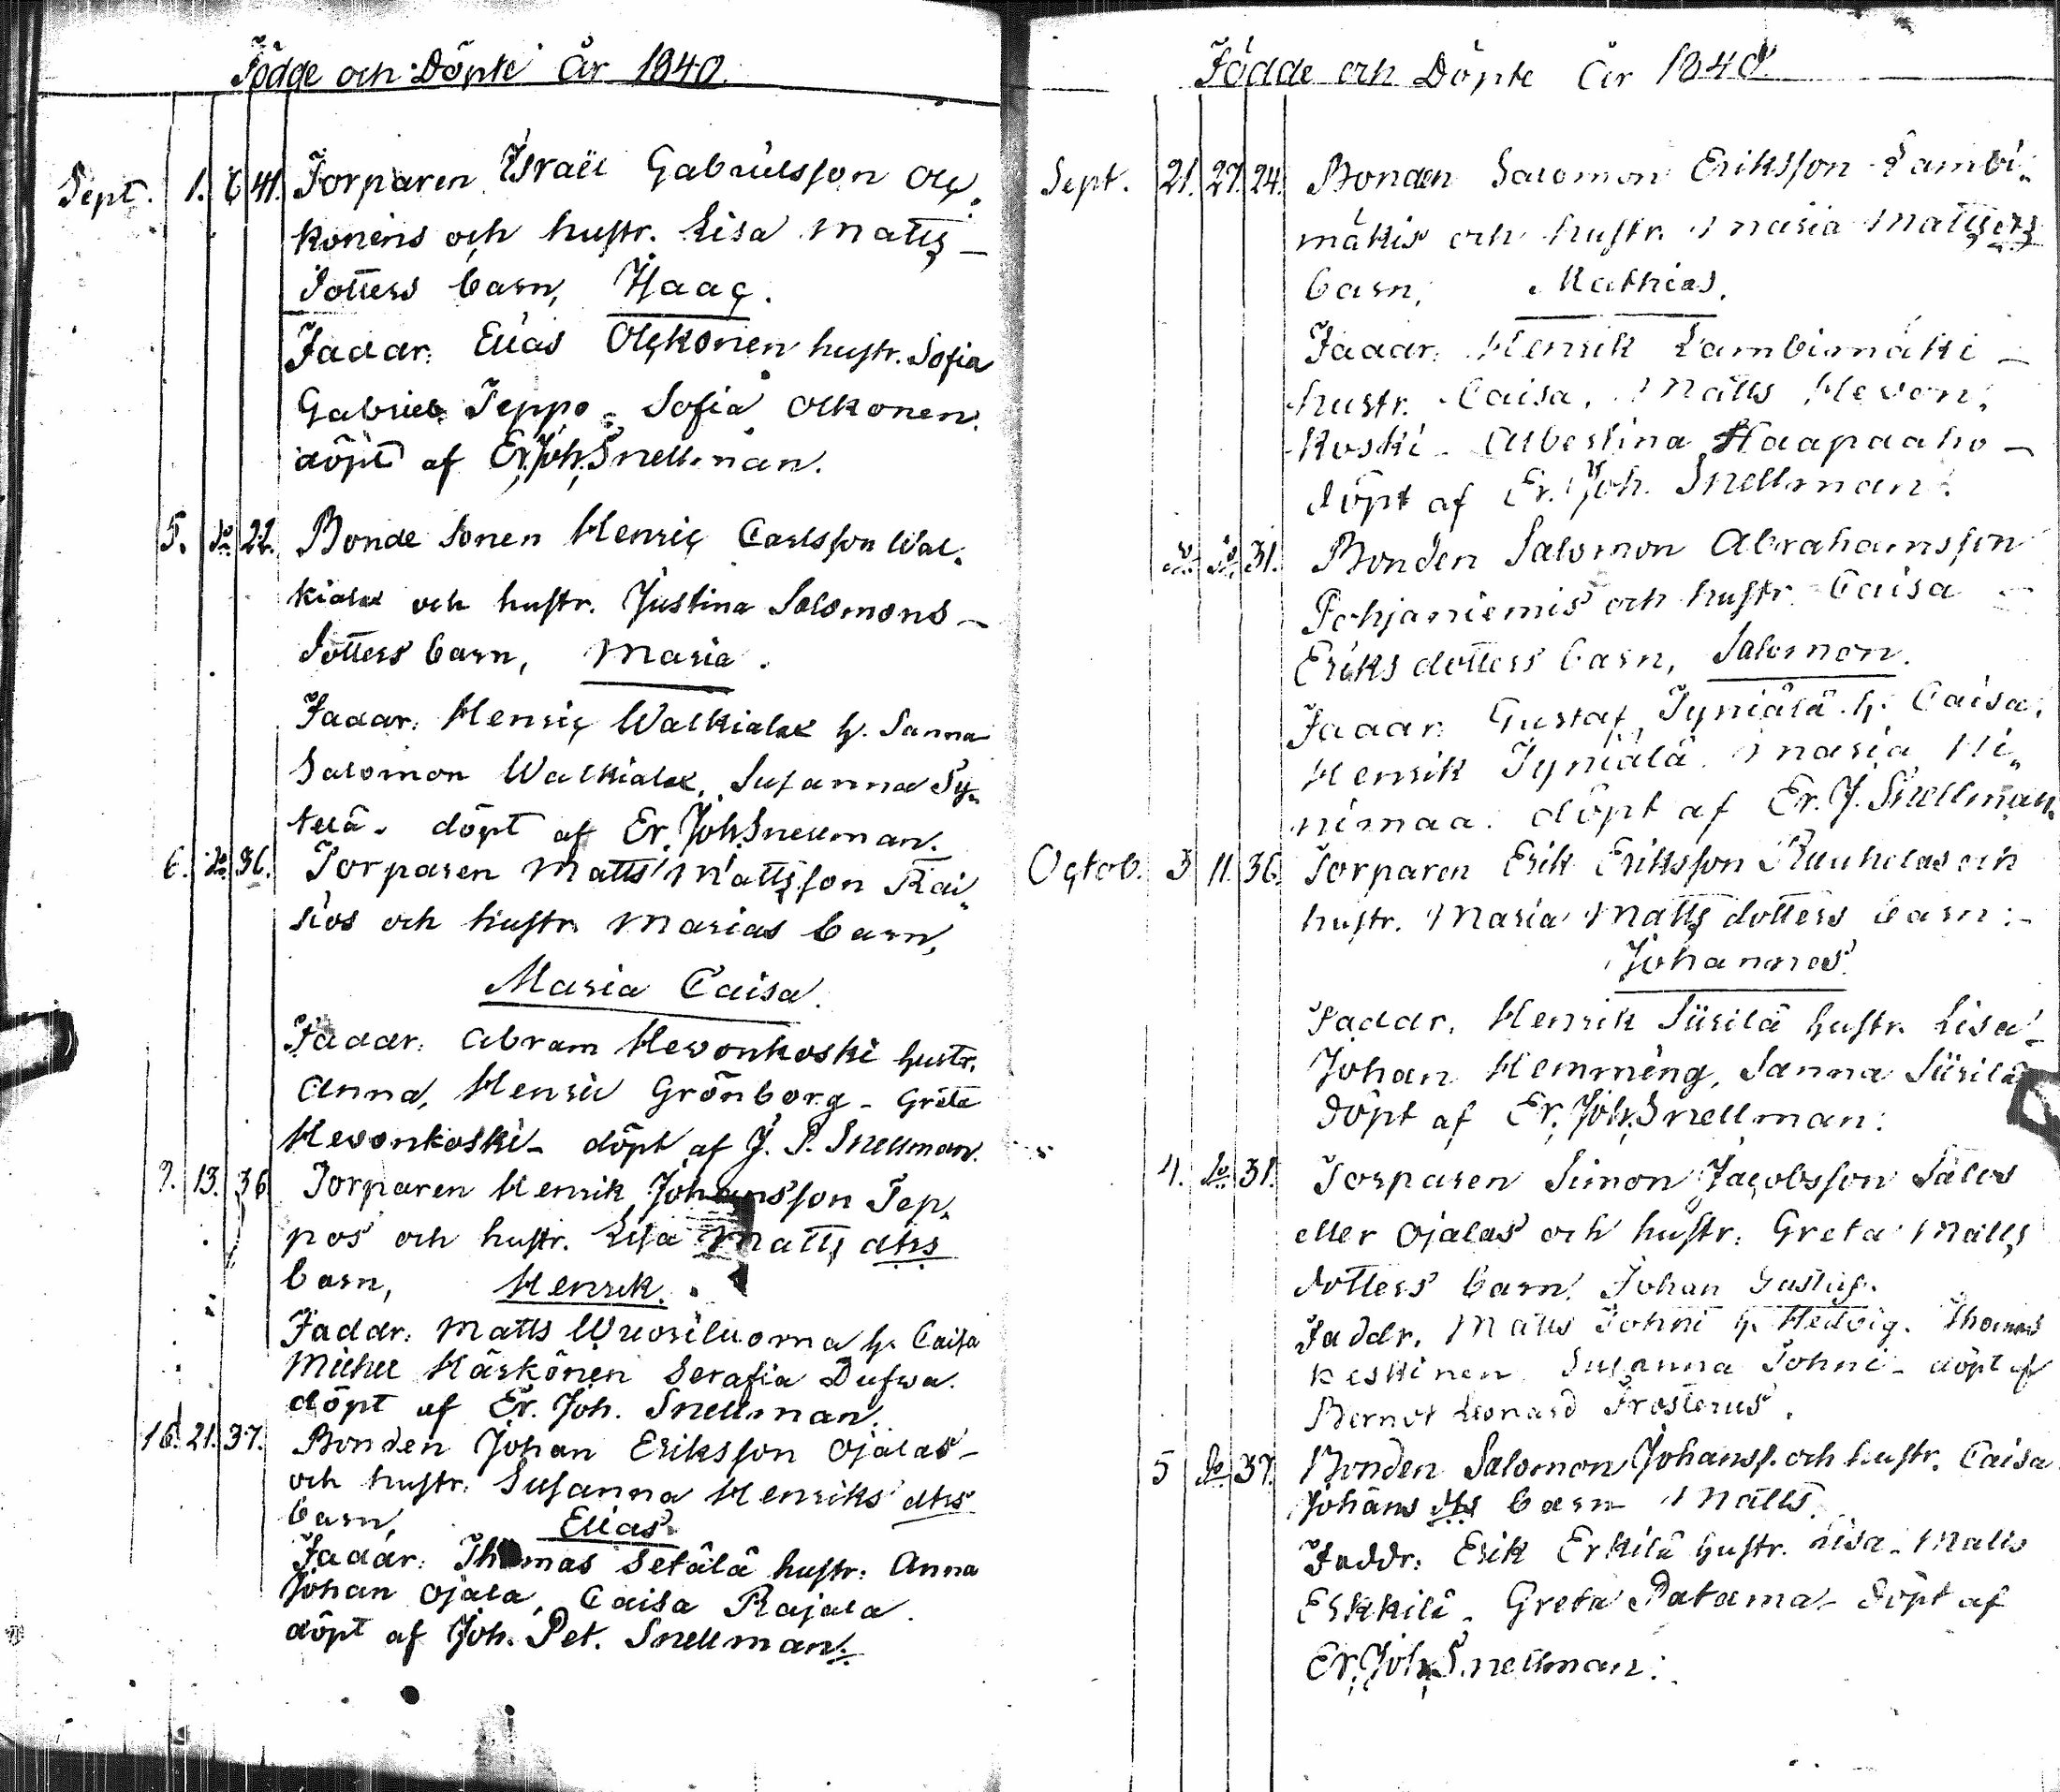 Födde och Döpte År 1840.
Sept. 1. 6 41. Torparen Israël Gabrielsson Olc-
konens och hustr. Lisa Matts-
dotters barn, Isaac.
Faddr: Elias Olckonen hustr. Sofia
Gabriel Seppo - Sofia Olkonen.
döpt af Er. Joh. Snellman.
5. do 22. Bonde Sonen Henric Carlsson Wal-
kialax och hustr. Justina Salomons-
dotters barn, Maria.
Faddr: Henric Walkialax h. Sanna
Salomon Walkialax, Susanna Sy-
telä. döpt af Er. Joh. Snellman.
6. do 36. Torparen Matts Mattsson Rai-
sios och hustr. Marias barn,
Maria Caisa.
Faddr: Abram Hevonkoski hustr.
Anna, Henric Grönborg - Greta
Hevonkoski - döpt af J. P. Snellman.
9. 13. 36 Torparen Henrik Johansson Sep-
pos och hustr. Lisa Matts dtrs
barn, Henrik.
Faddr: Matts Wuosiluoma h. Caisa
Michel Härkönen Serafia Dufva.
döpt af Er. Joh. Snellman.
16. 21. 37. Bonden Johan Eriksson Ojalas-
och hustr. Susanna Henriks dtrs
barn, Elias.
Faddr: Thomas Setälä hustr: Anna
Johan Ojala, Caisa Rajala.
döpt af Joh. Pet. Snellman.
Födde och Döpte År 1840.
Sept. 21. 27. 24. Bonden Salomon Eriksson Lambi-
mäkis och hustr. Maria Matts dtrs
barn, Mathias.
Faddr: Henrik Lambimäki -
hustr. Caisa, Matts Hevon-
koski - Albertina Haapaaho -
döpt af Er. Joh. Snellman.
do do 31. Bonden Salomon Abrahamsson
Pohjaniemis och hustr. Caisa -
Eriks dotters barn, Salomon.
Faddr: Gustaf Tyniälä h. Caisa,
Henrik Tyniälä. Maria Hi-
nimaa. döpt af Er. J. Snellman.
Octob. 3 11. 36. Torparen Erik Eriksson Ruuhelas och
hustr. Maria Matts dotters barn:-
Johannes.
Faddr. Henrik Siirilä hustr. Lisa -
Johan Hemming, Sanna Siirilä
döpt af Er. Joh. Snellman:
4. do 31. Torparen Simon Jacobsson Salos
eller Ojalas och hustr. Greta Matts
dotters barn. Johan Gustaf.
Faddr. Matts Tohni h. Hedvig. Thomas
Keskinen Susanna Tohni - döpt af
Berndt Leonard Frosterus.
5 do 37. Bonden Salomon Johanss. och hustr. Caisa
Johans dtrs barn Matts.
Faddr: Erik Erkilä hustr. Lisa. Matts
Erkkilä - Greta Patama - döpt af
Er. Joh. Snellman: